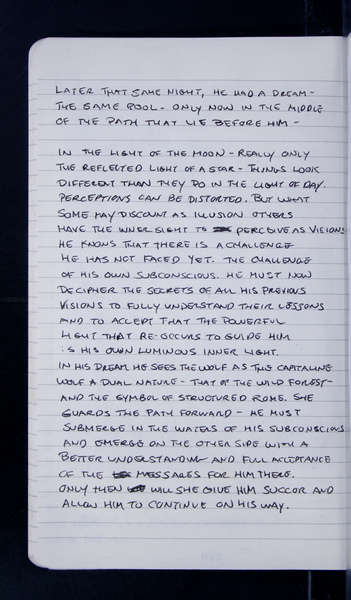 LATER THAT SAME NIGHT, HE HAD A DREAM -
THE SAME POOL - ONLY NOW IN THE MIDDLE
OF THE PATH THAT LIE BEFORE HIM -
IN THE LIGHT OF THE MOON - REALLY ONLY
THE REFLECTED LIGHT OF A STAR - THINGS LOOK
DIFFERENT THAN THEY DO IN THE LIGHT OF DAY.
PERCEPTIONS CAN BE DISTORTED. BUT WHAT
SOME MAY DISCOUNT AS ILLUSION OTHERS
HAVE THE INNER SIGHT TO PERCEIVE AS VISIONS
HE KNOWS THAT THERE IS A CHALLENGE
HE HAS NOT FACED YET. THE CHALLENGE
OF HIS OWN SUBCONSCIOUS. HE MUST NOW
DECIPHER THE SECRETS OF ALL HIS PREVIOUS
VISIONS TO FULLY UNDERSTAND THEIR LESSONS
AND TO ACCEPT THAT THE POWERFUL
LIGHT THAT RE-OCCURS TO GUIDE HIM
IS HIS OWN LUMINOUS INNER LIGHT.
IN HIS DREAM HE SEES THE WOLF AS THE CAPITALINE
WOLF A DUAL NATURE - THAT OF THE WILD FOREST -
AND THE SYMBOL OF STRUCTURED ROME. SHE
GUARDS THE PATH FORWARD - HE MUST
SUBMERGE IN THE WATERS OF HIS SUBCONSCIOUS
AND EMERGE ON THE OTHER SIDE WITH A
BETTER UNDERSTANDING AND FULL ACCEPTANCE
OF THE MESSAGES FOR HIM THERE.
ONLY THEN WILL SHE GIVE HIM SUCCOR AND
ALLOW HIM TO CONTINUE ON HIS WAY.